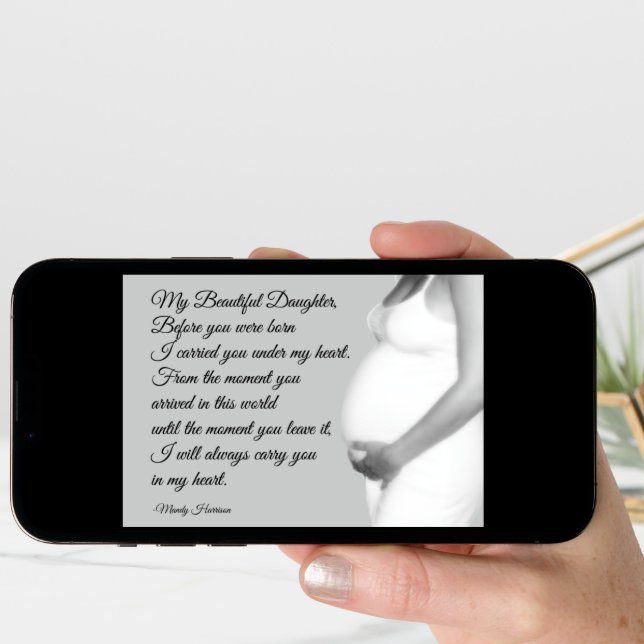 My Beautiful Daughter,
Before you were born
I carried you under my heart.
From the moment you
arrived in this world
until the moment you leave it,
I will always carry you
in my heart.
-Mandy Harrison